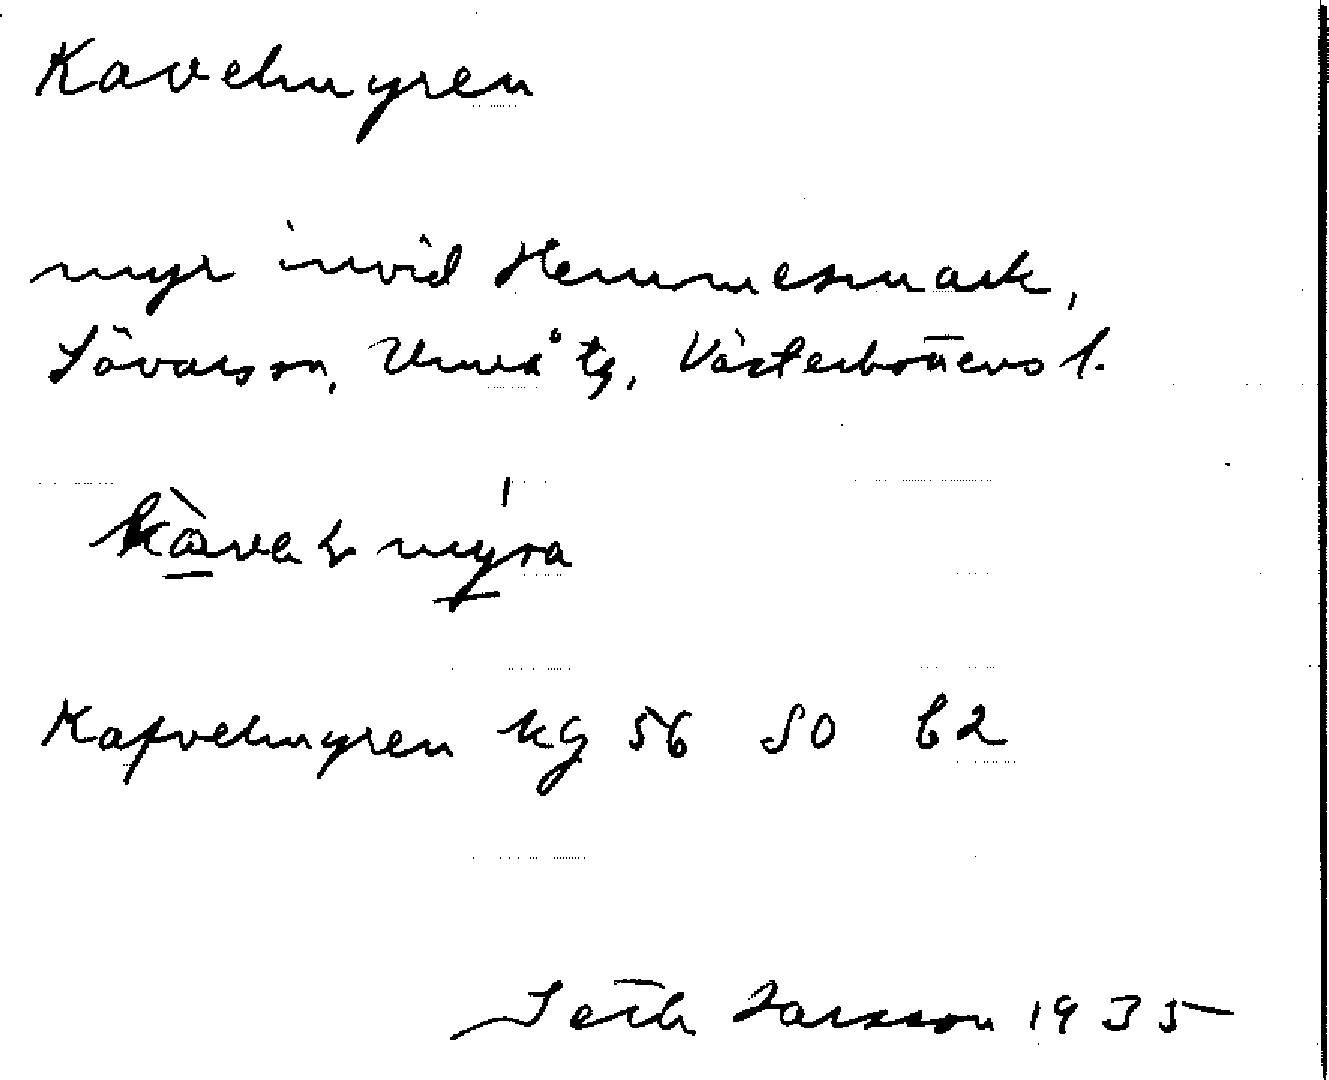 Kavelmyren
myr invid Hemmesmark,
Sävarssn, Umeå tg, Västerbottens l.
kàvel myra
Kafvelmyren kg 56 SO b2
Seth Larsson 1935